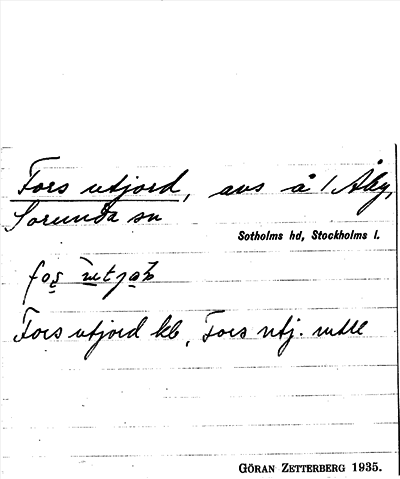 Fors utjord, avs å 1 Åby,
Sorunda sn
Sotholms hd, Stockholms l.
Fors utjord kb, Fors utj. mtll
GÖRAN ZETTERBERG 1935.